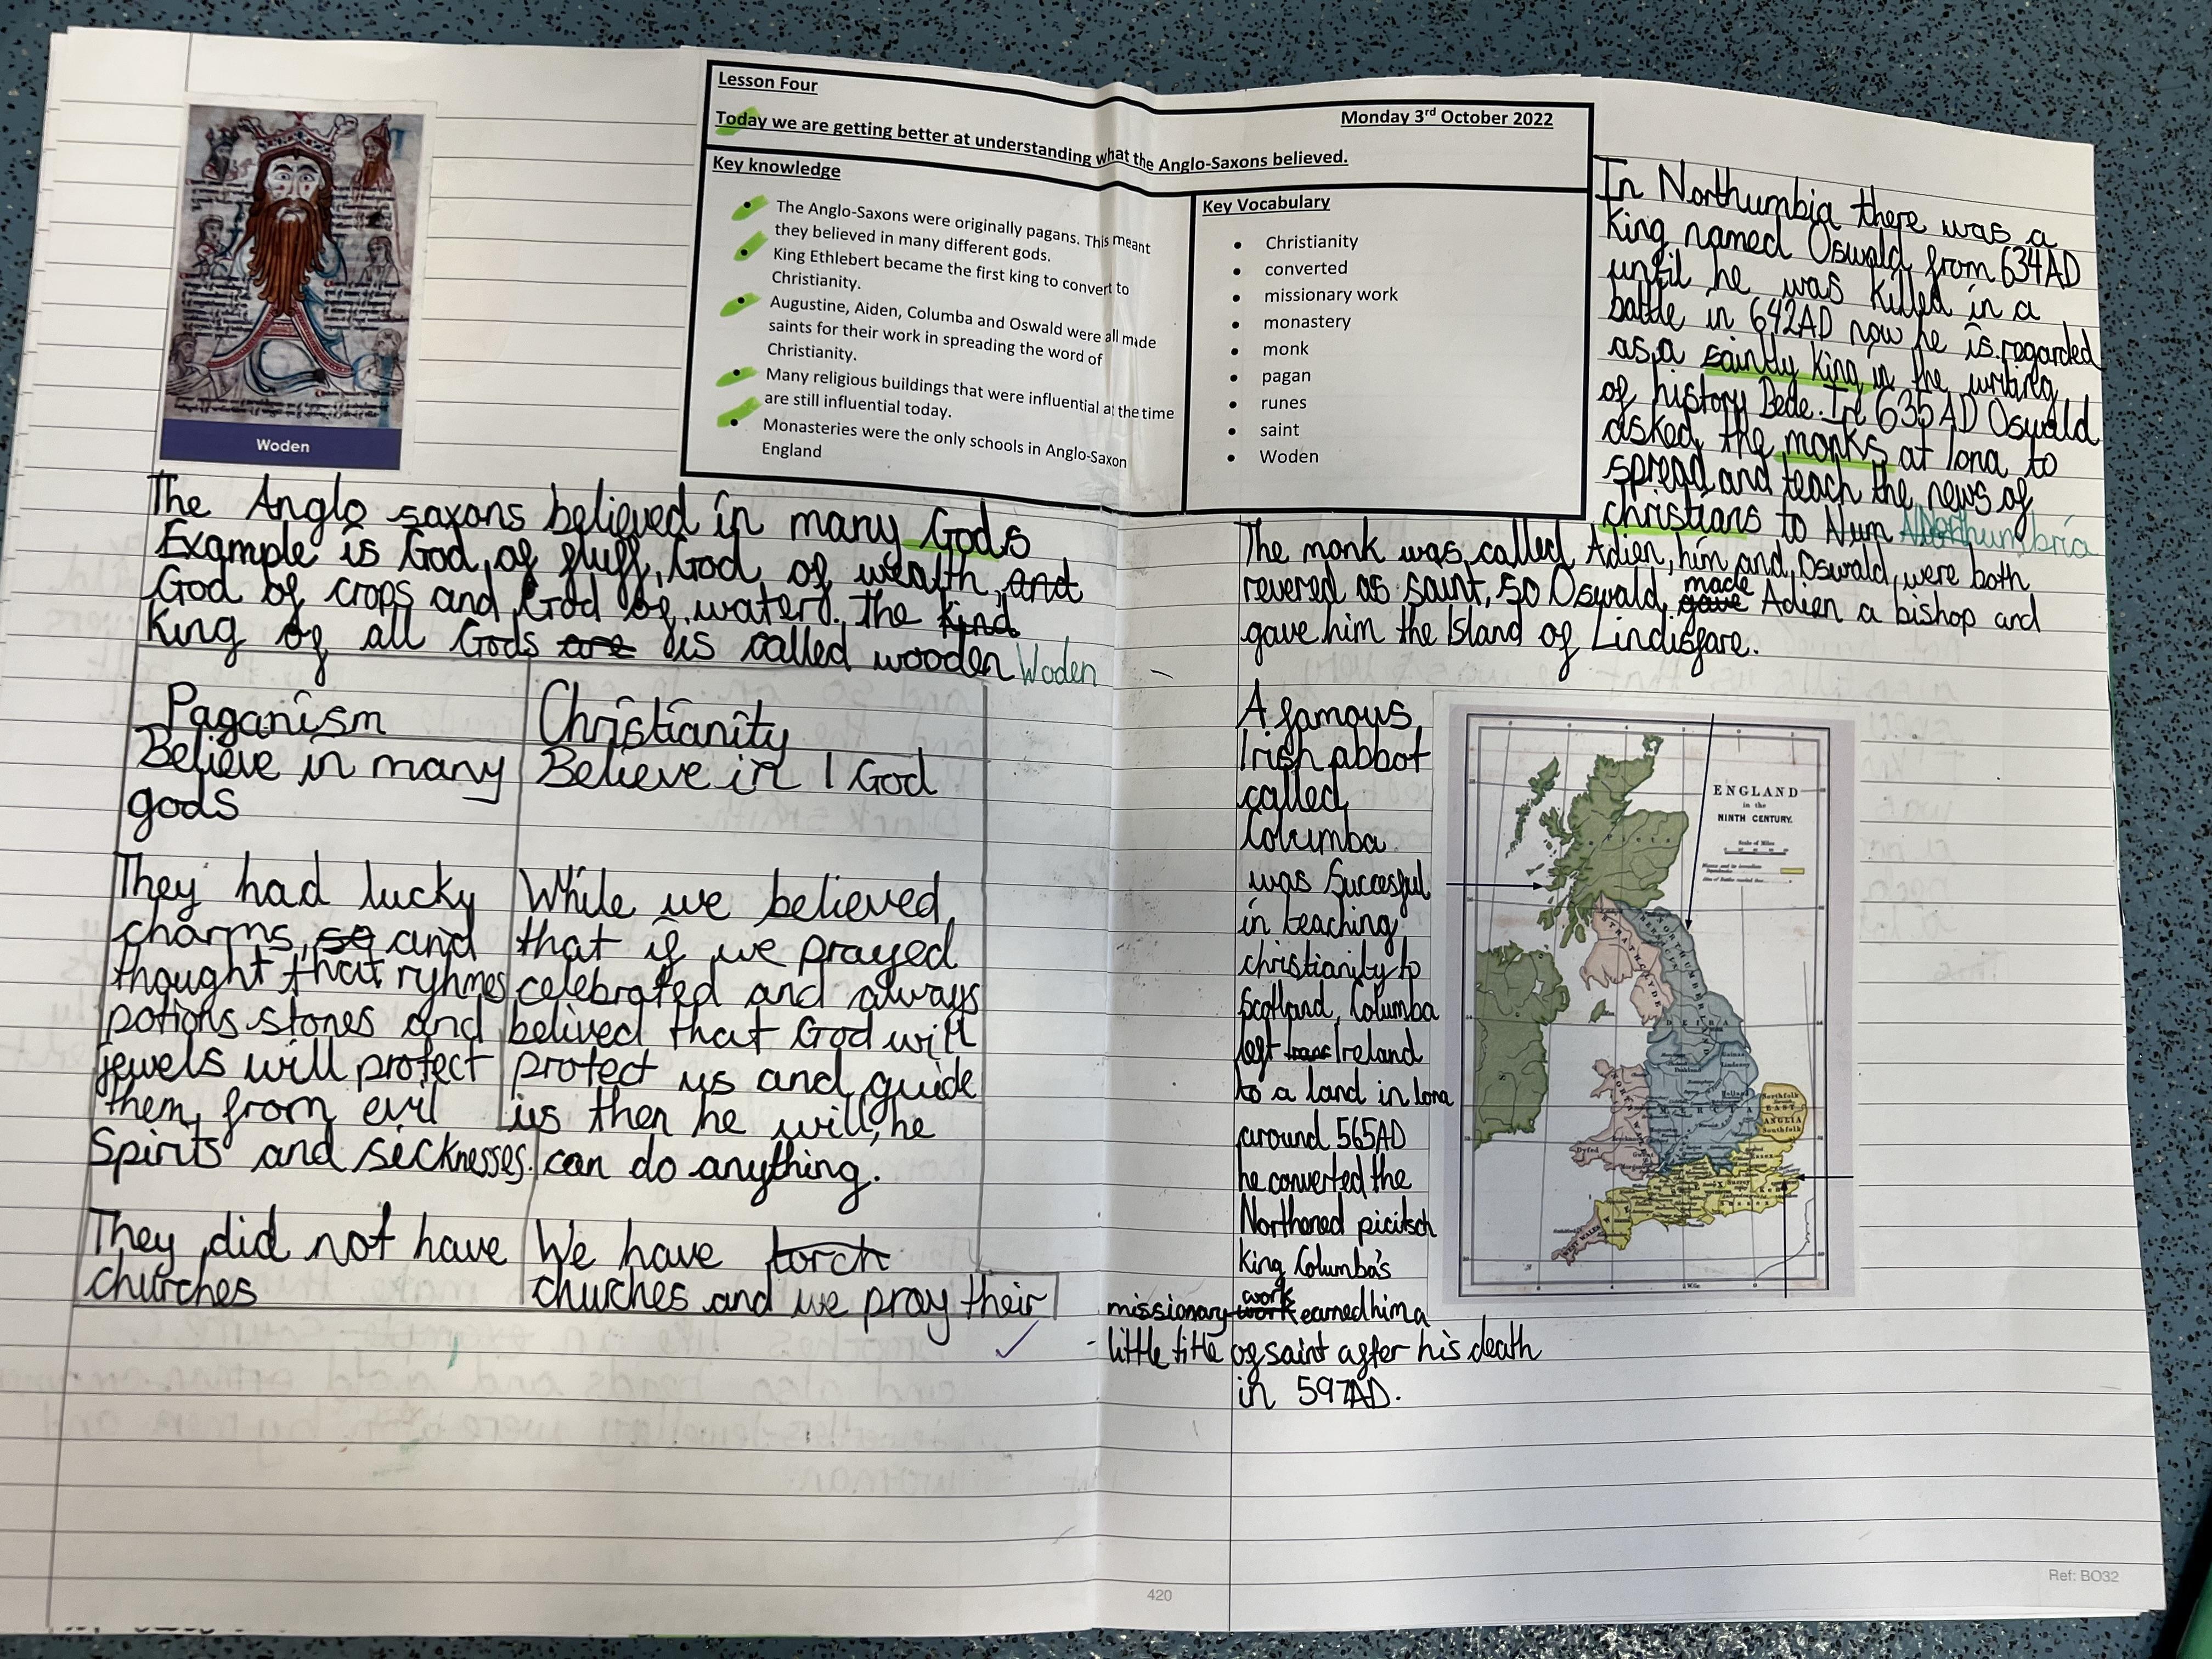 Woden
Lesson Four
Monday 3rd October 2022
Today we are getting better at understanding what the Anglo-Saxons believed.
Key knowledge
• The Anglo-Saxons were originally pagans. This meant
they believed in many different gods.
• King Ethlebert became the first king to convert to
Christianity.
• Augustine, Aiden, Columba and Oswald were all made
saints for their work in spreading the word of
Christianity.
• Many religious buildings that were influential at the time
are still influential today.
• Monasteries were the only schools in Anglo-Saxon
England
Key Vocabulary
• Christianity
• converted
• missionary work
• monastery
• monk
• pagan
• runes
• saint
• Woden
The Anglo saxons believed in many Gods
Example is God of fluff, God of wealth, and
God of crops and God of water. the kind
King of all Gods are is called wooden Woden
Paganism
Believe in many
gods
They had lucky
charms, so and
thought that ryhmes
potions stones and
jewels will protect
them from evil
Spirits and sicknesses.
They did not have
churches
Christianity
Believe in 1 God
While we believed
that if we prayed
celebrated and always
belived that God will
protect us and guide
us then he will, he
can do anything.
We have torch
churches and we pray their
In Northumbia there was a
King named Oswald from 634AD
until he was killed in a
battle in 642AD now he is regarded
as a saintly king in the writing
of history Bede. In 635AD Oswald
asked the monks at Iona to
spread and teach the news of
christians to Num Northumbria
The monk was called Adien, him and Oswald were both
revered as saint, so Oswald gave made Adien a bishop and
gave him the Island of Lindisfare.
A famous
Irish abbot
called
Columba
was Succesful
in teaching
christianity to
Scotland, Columba
left Ireland
to a land in Iona
around 565AD
he converted the
Northored picitsch
King Columba's
missionary work work earned him a
little title of saint after his death
in 597AD.
ENGLAND
in the
NINTH CENTURY.
Scale of Miles
STRATHCLYDE
DEIRA
MERCIA
NORTH WALES
Northfolk
EAST
ANGLIA
Southfolk
Essex
WEST WALES
420
Ref: BO32